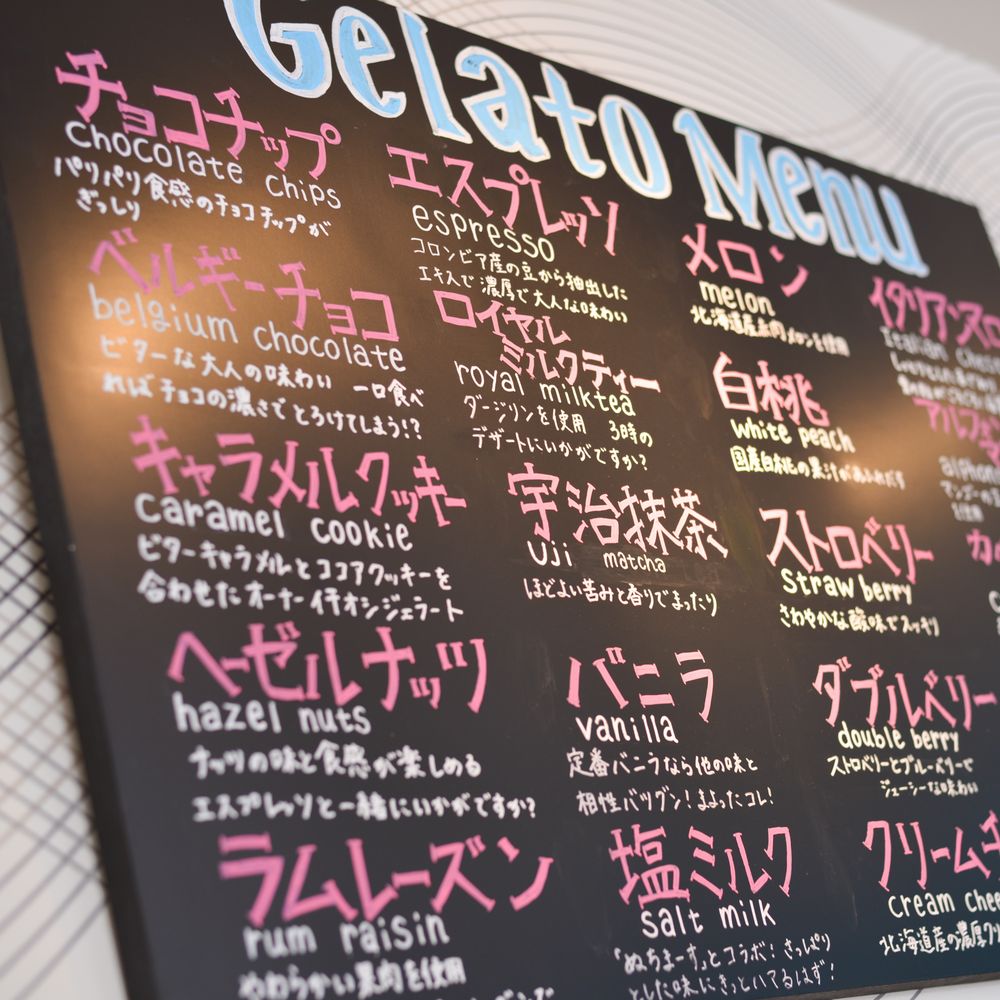 Gelato Menu
チョコチップ
Chocolate chips
パリパリ食感のチョコチップが
ぎっしり
ベルギーチョコ
belgium chocolate
ビターな大人の味わい 一口食べ
ればチョコの濃さでとろけてしまう!?
キャラメルクッキー
caramel cookie
ビターキャラメルとココアクッキーを
合わせたオーナーイチオシジェラート
ヘーゼルナッツ
hazel nuts
ナッツの味と食感が楽しめる
エスプレッソと一緒にいかがですか?
ラムレーズン
rum raisin
やわらかい果肉を使用
エスプレッソ
espresso
コロンビア産の豆から抽出した
エキスで濃厚で大人な味わい
ロイヤル
ミルクティー
royal milktea
ダージリンを使用 3時の
デザートにいかがですか?
宇治抹茶
Uji matcha
ほどよい苦みと香りでまったり
バニラ
vanilla
定番バニラなら他の味と
相性バツグン!まよったコレ!
塩ミルク
salt milk
「ぬちまーす」とコラボ!さっぱり
とした味にきっとハマるはず!
メロン
melon
北海道産赤肉メロンを使用
白桃
white peach
国産白桃の果汁があふれだす
ストロベリー
Strawberry
さわやかな酸味でスッキリ
ダブルベリー
double berry
ストロベリーとブルーベリーで
ジューシーな味わい
クリームチ
cream chee
北海道産の濃厚クリ
イタリアンスロ
Italian
アルフォ
alphon
カ